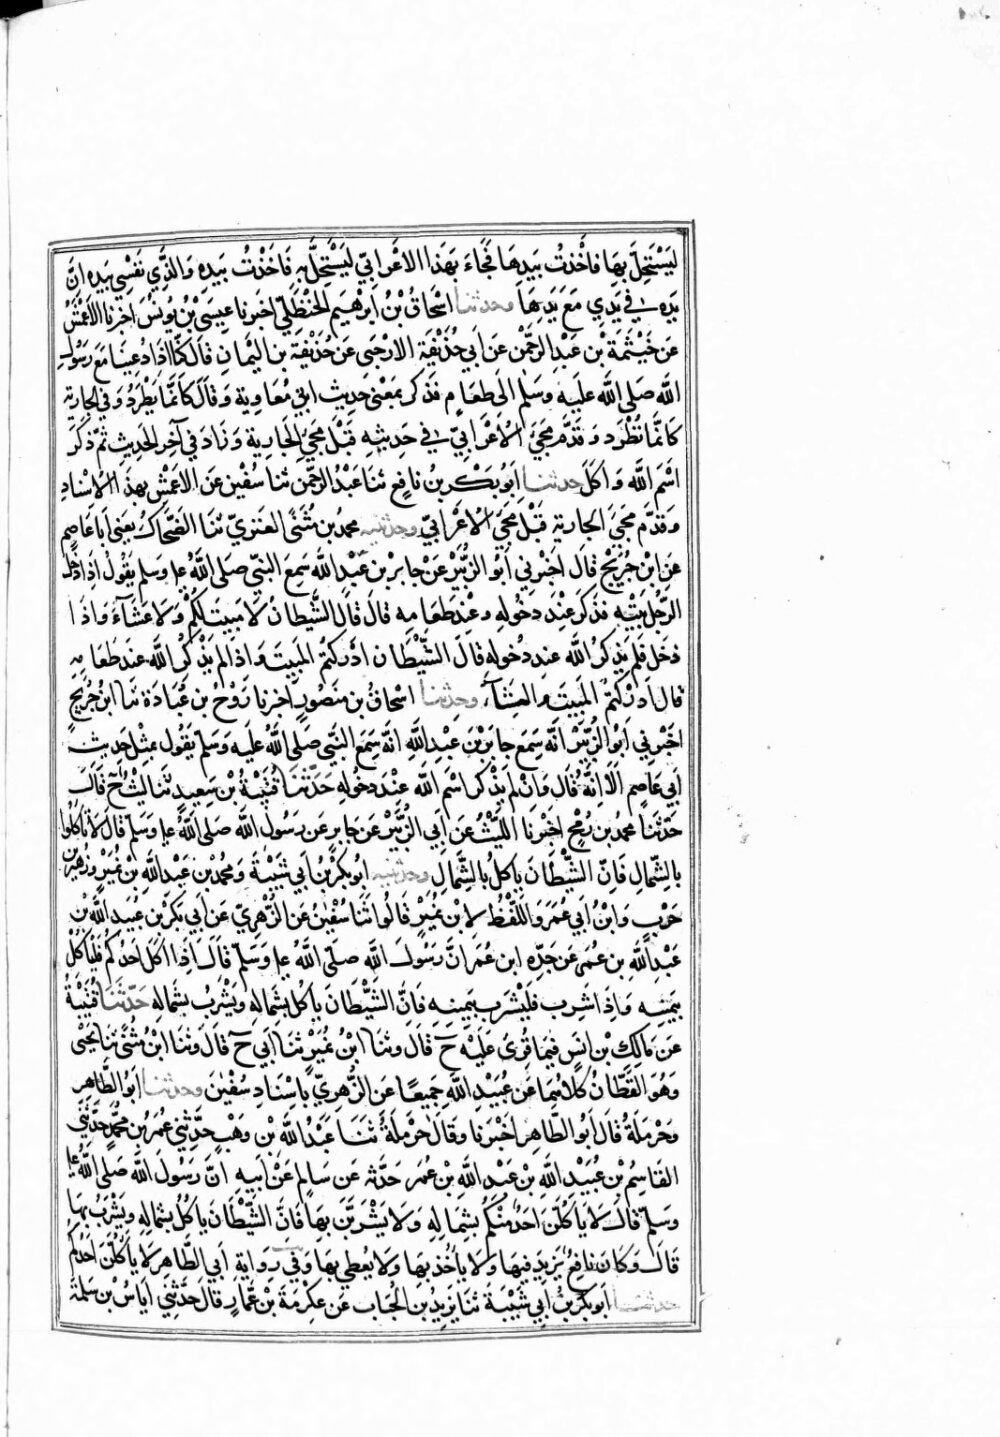 ليَسْتَحِلَّ بِهَا فَأَخَذْتُ بِيَدِهَا فَجَاءَ بِهَذَا الاَعْرَابِيّ لِيَسْتَحِلَّ بِهِ فَاَخَذْتُ بِيَدِهِ وَالَّذِي نَفْسِي بِيَدِهِ اِنَّ
يَدَهُ فِي يَدِي مَعَ يَدِهَا وحدثنا اسْحَاقُ بْنُ ابرٰهيم الحَنْظَلِيّ اخبرنا عِيسَى بْنُ يُونُسَ اخبرنا الاَعْمَشُ
عَن خَيْثَمة بن عَبدِ الرَّحمٰن عَن اَبي حُذَيْفَة الارحَبى عَن حُذَيْفَة بن اليَمَانِ قَالَ كُنَّا اذَا دُعِينَا مَعَ رَسُولِ
اللَّه صَلى اللَّه عليه وسَلم الَى طَعَامٍ فذَكر بمَعْنى حَدِيث ابي مُعَاوِية وَقَالَ كَاَنَّمَا يُطْرَدُ وَفِي الجارِيَةِ
كَاَنَّمَا تُطْرَد وَقَدَّمَ مَجِيَ الاَعْرَابِيّ فِي حَدِيثِهِ قَبْلَ مَجِيءِ الجَارِيَة وَزَادَ فِي آخِرِ الحَدِيثِ ثمّ ذَكَرَ
اسْمَ اللَّه وَاَكَلَ حدثنا اَبُو بَكْرِ بنُ نافِعٍ ثَنَا عَبْدُ الرحمٰن ثنا سُفْيٰن عَن الاعْمَش بهذَا الاِسْنادِ
وَقَدَّم مَجِيَ الجارية قَبْلَ مَجِيَ الاَعْرَابيّ وحدثنيه محمد بن مُثَنَّى العنزيّ ثَنَا الضَّحَّاكُ يَعنِى اَبَا عَاصِمٍ
عَن ابْنِ جُرَيْجٍ قَالَ اَخْبَرَنِي اَبُو الزُّبَيْرِ عَنْ جابِرِ بْنِ عَبْدِ اللَّه سَمِعَ النَّبيّ صَلى اللَّهُ عليه وسلم يَقُولُ اِذَا دَخَلَ
الرَّجُلُ بَيْتَهُ فذَكَر عِنْدَ دخُولِهِ وعِنْدَ طعَامِهِ قالَ قَالَ الشَّيْطَانُ لا مَبِيتَ لَكُمْ وَلا عَشَآءَ وَاذَا
دَخَل فَلَم يَذكُر اللَّه عِندَ دُخُولِهِ قَالَ الشَّيْطَان اَدْرَكتُمُ المَبِيتَ وَاذَا لَم يَذْكُرُ اللَّه عِندَ طَعَامِهِ
قَالَ اَدرَكتُمُ المَبِيتَ وَالعِشَآءَ وحدثنا اسْحَاقُ بن مَنصُورٍ اخبرنا رَوْحُ بن عُبَادَة ثنا ابنُ جُرَيجٍ
اَخبَرني اَبُو الزُّبَيْر انّه سَمِعَ جابِرَ بْنَ عَبدِ اللَّهِ اِنّه سَمِعَ النَّبيّ صَلى اللَّهُ عليه وَسَلم يَقُول بمِثْل حَدِيث
اَبِي عَاصِم الاَّ اِنَّهُ قَالَ وَانْ لَم يَذْكُرِ اسْم اللَّه عِنْدَ دخُولِهِ حَدّثَنا قُتَيْبَةُ بْن سَعِيدٍ ثَنا لَيْثٌ حَ قَالَ
حَدّثَنا محمد بن رُمحٍ اخبَرنَا اللَّيْثُ عَن اَبي الزُّبَيْرِ عَن جَابِرٍ عَن رَسُول اللَّه صَلى اللَّهُ عليه وسَلم قَالَ لا تَأكلُوا
بالشِّمالِ فَانّ الشَّيْطانَ ياكلُ بالشَّمالِ وحدثنيه ابُو بكرِ بْنُ اَبي شَيْبَةَ وَمُحَمد بن عَبْدِ اللَّهِ بْن نُمَيْرٍ وَزُهَيْرُ بن
حَربٍ وَابْنُ ابي عُمَرَ وَاللَّفْظُ لابْنِ نُمَيْرٍ قَالُوا ثَنا سُفْيٰنُ عَن الزُّهْرِيّ عَن اَبي بَكْر بْنِ عُبَيد اللَّهِ بْن
عَبدِ اللَّه بن عُمَر عَن جَدِّهِ ابن عُمَر اَنَّ رَسُولَ اللَّه صلى اللَّه عليه وَسَلم قالَ اِذَا اَكَلَ احَدُكُم فَلْيَاكُلْ
بيَمِينِهِ وَاِذَا شَرِب فَلْيَشرَب بيَمِينِهِ فَانَّ الشَّيْطَانَ ياكُلُ بشِمَالِهِ وَيَشرَبُ بشِمالِهِ حَدّثَنا قُتَيْبَةُ
عَن مَالِكِ بْن اَنَسٍ فيمَا قُرِئ عَلَيْهِ حَ قَالَ وثَنا ابْنُ نُمَيْرٍ ثَنَا اَبِي حَ قالَ وَثَنا ابْنُ مُثَنَّى ثنَا يَحْيَى
وَهُوَ القَطَّانُ كلاهُمَا عَن عُبَيْدِ اللَّهِ جَمِيعًا عَن الزُّهرِيّ باسْنَادِ سُفْيٰنَ وحدثنا اَبُو الطَّاهِرِ
وحَرْمَلةُ قَالَ اَبُو الطَّاهِرِ اخبَرنَا وقَالَ حَرْمَلَةُ ثَنَا عَبْدُ اللَّه بْن وَهْبٍ حدَّثَنِي عُمَر بْن مُحَمّدٍ حدّثَنِي
القَاسِمُ بْن عُبَيْدِ اللَّهِ بن عَبْدِ اللَّهِ بْن عُمَر حَدَّثَهُ عَن سَالِمٍ عَنْ اَبِيهِ انّ رَسُولَ اللَّه صَلى اللَّهُ عليه
وسَلم قَالَ لا يَاكُلَنَّ احَدٌ مِنْكُم بشِمَالِهِ وَلا يَشْرَبَنَّ بِهَا فَانَّ الشَّيْطَانَ يَاكُلُ بشِمالِهِ وَيَشْرَبُ بِهَا
قَالَ وَكَانَ نافِعٌ يَزِيد فِيهَا وَلا ياخُذ بِهَا وَلا يُعطِي بهَا وَفي رِوَاية اَبي الطَّاهِر لا ياكُلَنَّ اَحَدُكُم
حدثنا اَبُو بكر بنُ ابي شَيْبَة ثَنَا زَيْدُ بن الحُبَاب عَن عِكْرِمَة بْن عَمّارٍ قَالَ حدّثَنِي ايَاسُ بْن سَلَمَةَ